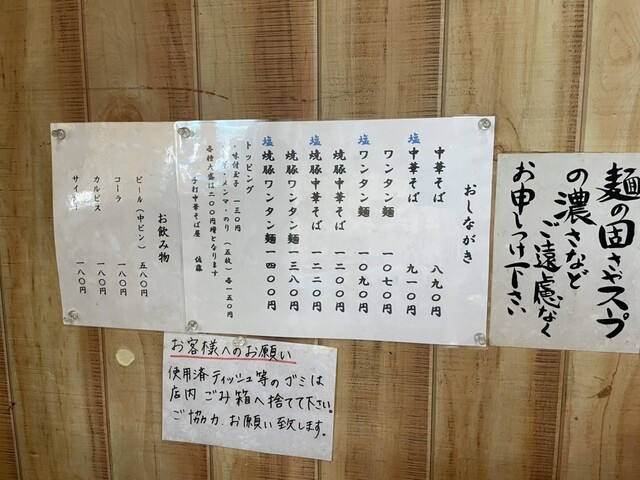 おしながき
中華そば 八九〇円
塩中華そば 九一〇円
ワンタン麺 一〇七〇円
塩ワンタン麺 一〇九〇円
焼豚中華そば 一二〇〇円
塩焼豚中華そば 一二二〇円
焼豚ワンタン麺 一三八〇円
塩焼豚ワンタン麺 一四〇〇円
トッピング
・味付玉子 一三〇円
メンマ・のり(五枚)各一五〇円
各種大盛は二〇〇円増となります
手打中華そば屋 佐藤
お飲み物
ビール(中ビン) 五八〇円
コーラ 一八〇円
カルピス 一八〇円
サイダー 一八〇円
麺の固さやスープ
の濃さなど
ご遠慮なく
お申しつけ下さい
お客様へのお願い
使用済ティッシュ等のゴミは
店内ごみ箱へ捨てて下さい。
ご協力、お願い致します。